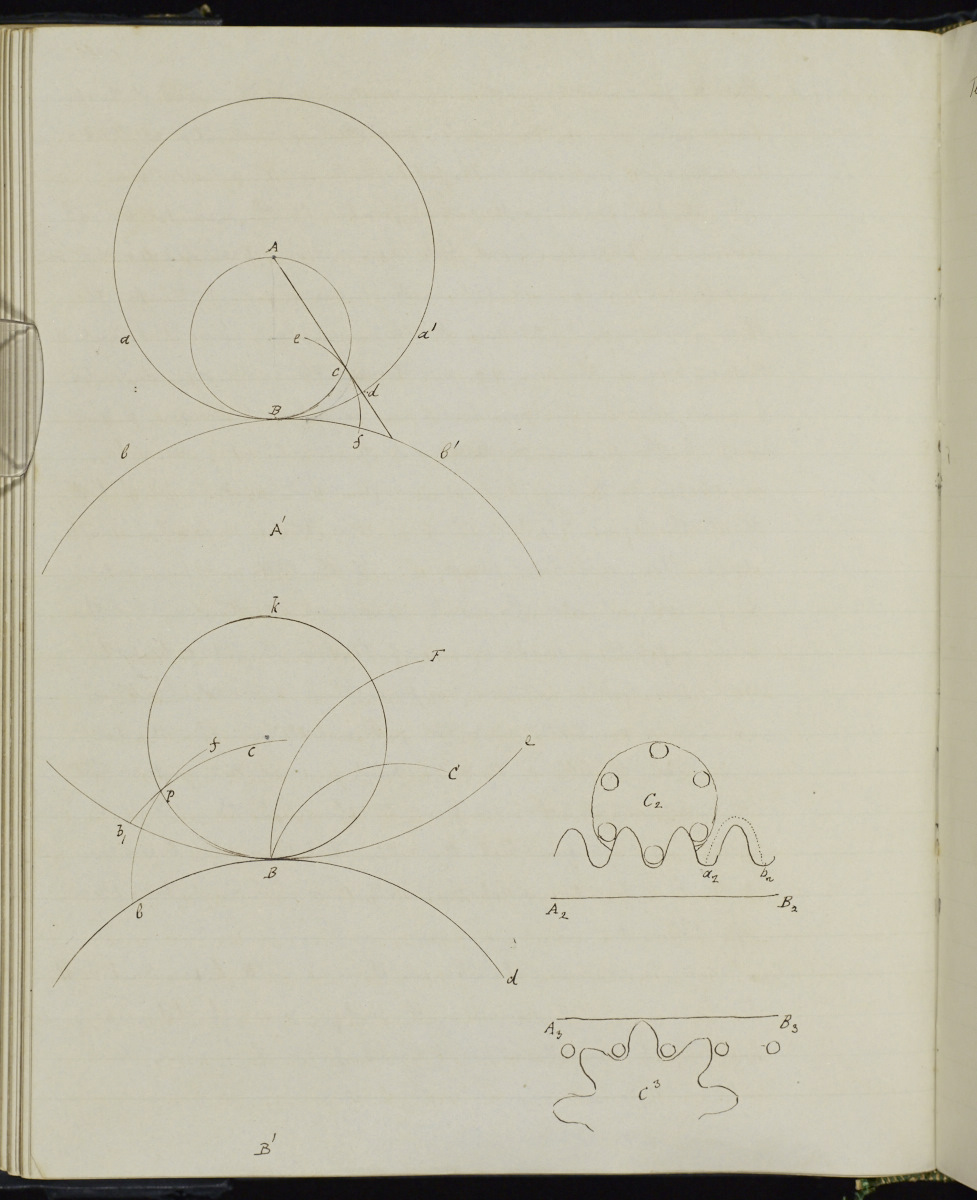 A
a
a'
e
c
d
B
f
b
b'
A'
k
F
f
c
e
C
p
b,
B
b
d
C₂
a₂
b₂
A₂
B₂
A₃
B₃
C³
B'